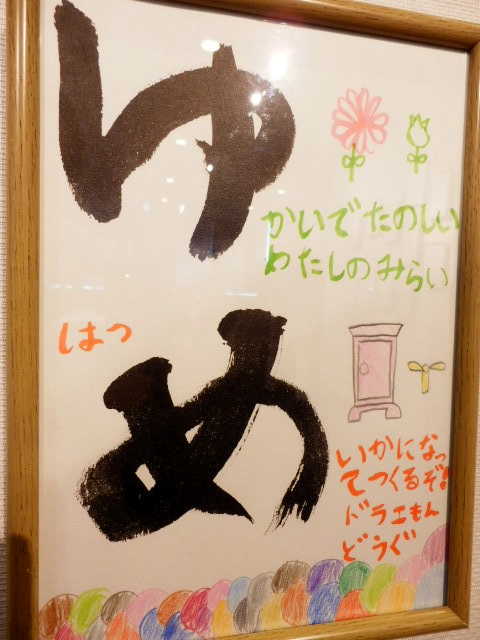 はつ
ゆ
め
かいでたのしい
わたしのみらい
いかになっ
てつくるぞ!
ドラエもん
どうぐ